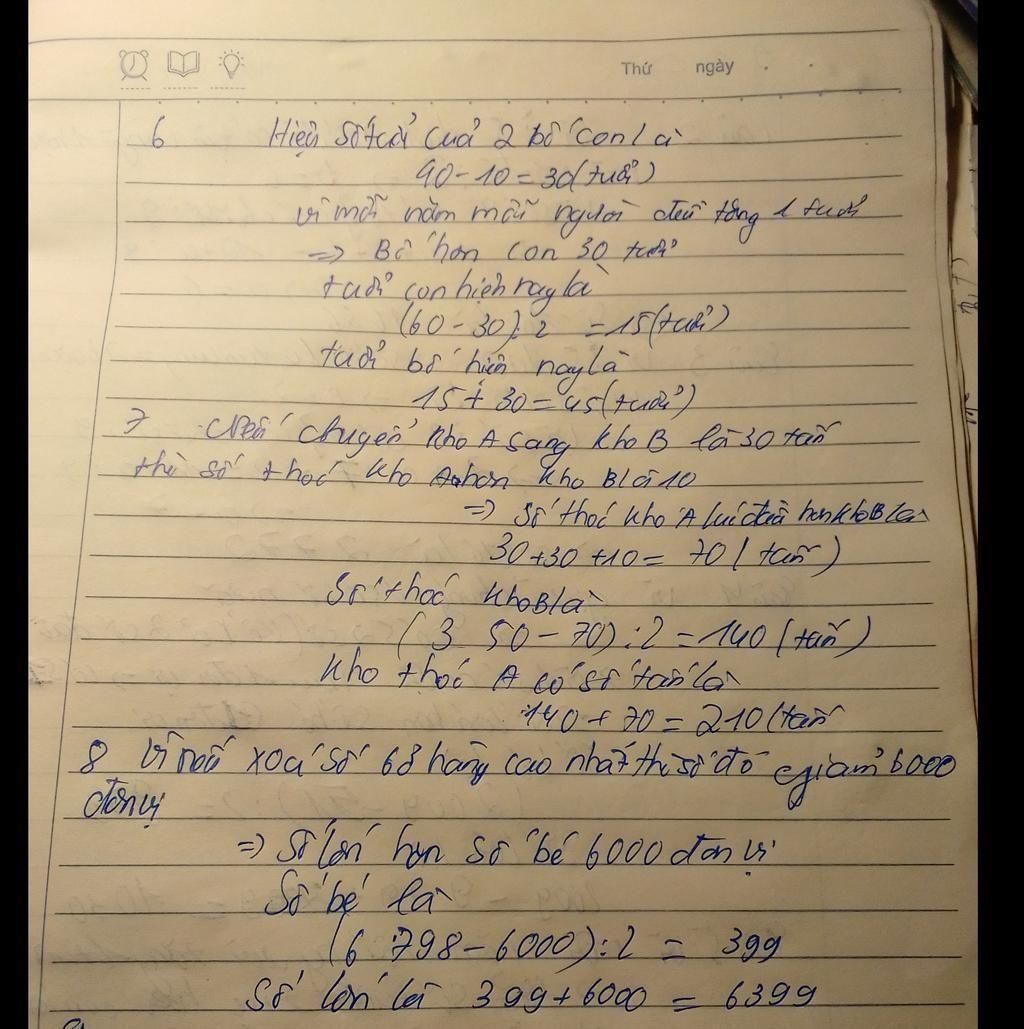 Thứ ngày
6 Hiệu số tuổi cuả 2 bố con là
40 - 10 = 30 (tuổi)
vì mỗi năm mỗi người đều tăng 1 tuổi
=> Bố hơn con 30 tuổi
tuổi con hiện nay là
(60 - 30) : 2 = 15 (tuổi)
tuổi bố hiện nay là
15 + 30 = 45 (tuổi)
7 Nếu chuyển kho A sang kho B là 30 tấn
thì số thóc kho A hơn kho B là 10
=> số thóc kho A lúc đầu hơn kho B là
30 + 30 + 10 = 70 (tấn)
Số thóc kho B là
(3 50 - 70) : 2 = 140 (tấn)
kho thóc A có số tấn là
140 + 70 = 210 (tấn
8 Vì nếu xoá số 6 ở hàng cao nhất thì số đó giảm 6000
đơn vị
=> Số lớn hơn số bé 6000 đơn vị
Số bé là
(6 798 - 6000) : 2 = 399
Số lớn là 399 + 6000 = 6399